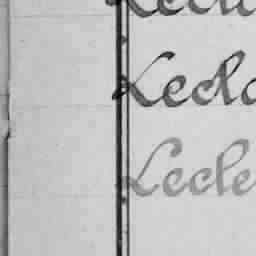 Lecl
Lecla
Lecle